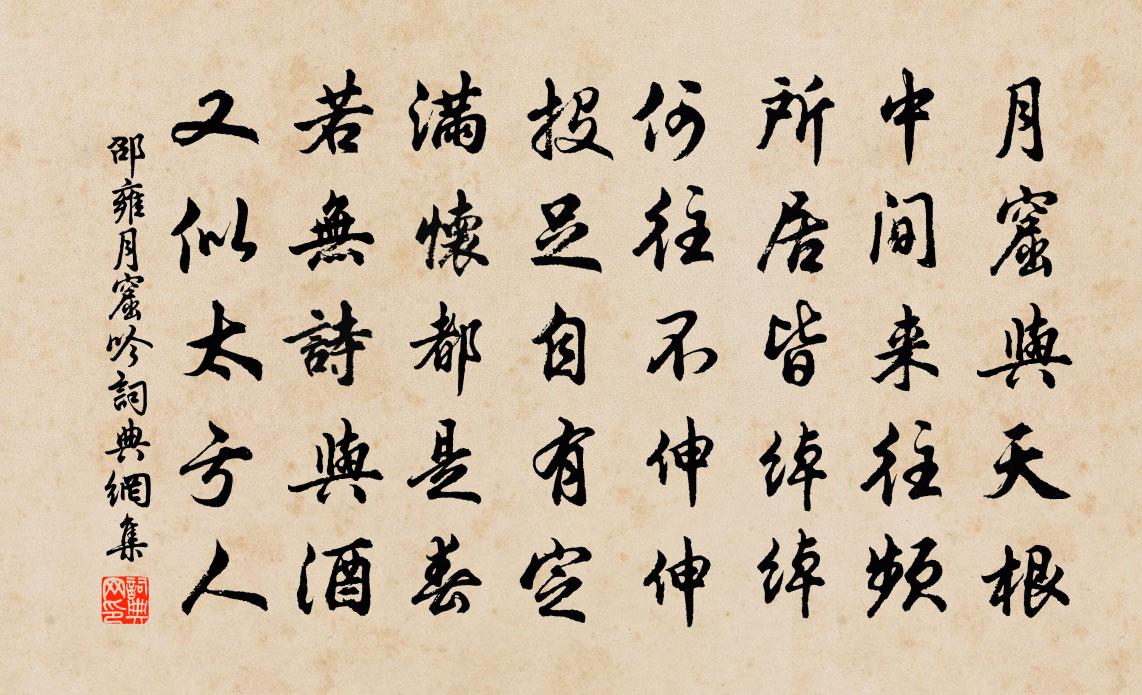 月窟與天根
中間来往頻
所居皆綽綽
何往不伸伸
投足自有定
滿懷都是春
若無詩與酒
又似太亏人
邵雍月窟吟詞典網集
詞典网印